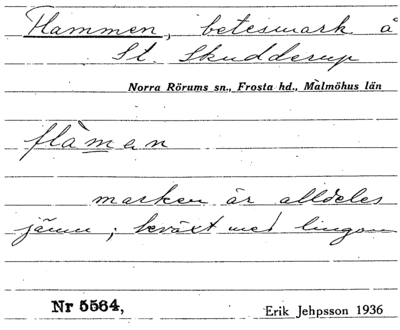 Flammen, betesmark å
St. Skudderup
Norra Rörums sn., Frosta hd., Malmöhus län
flàmen
marken är alldeles
jämn; beväxt med lingon
Nr 5564,
Erik Jehpsson 1936